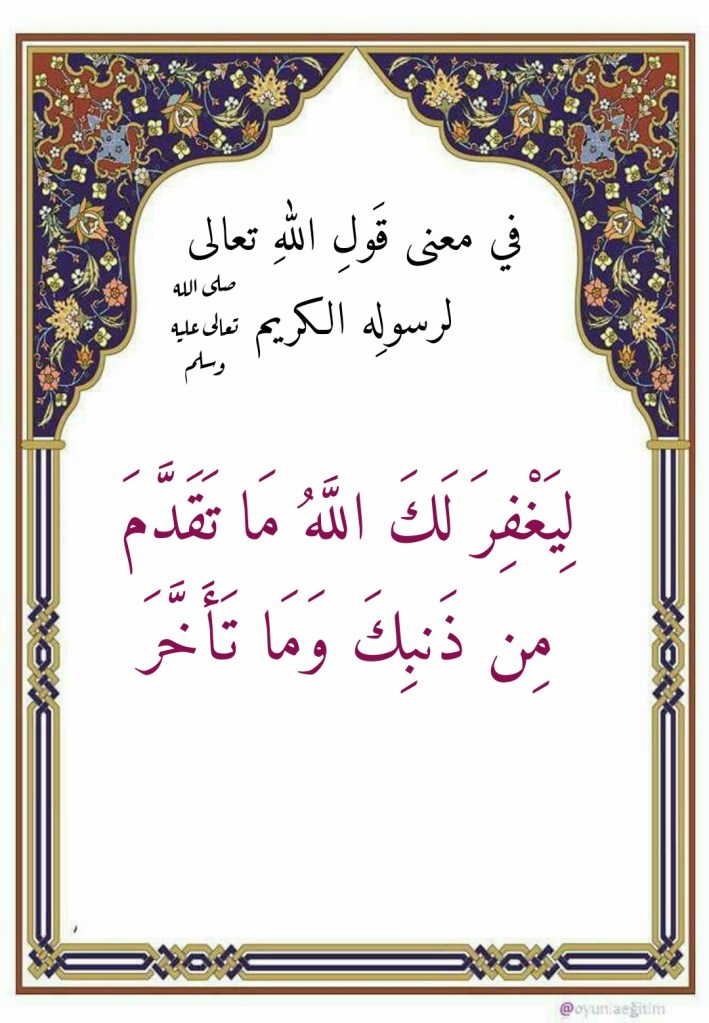 في معنى قَولِ اللهِ تعالى
لرسولِه الكريم صلى الله تعالى عليه وسلم
لِيَغْفِرَ لَكَ اللَّهُ مَا تَقَدَّمَ
مِن ذَنبِكَ وَمَا تَأَخَّرَ
@oyunlaeğitim